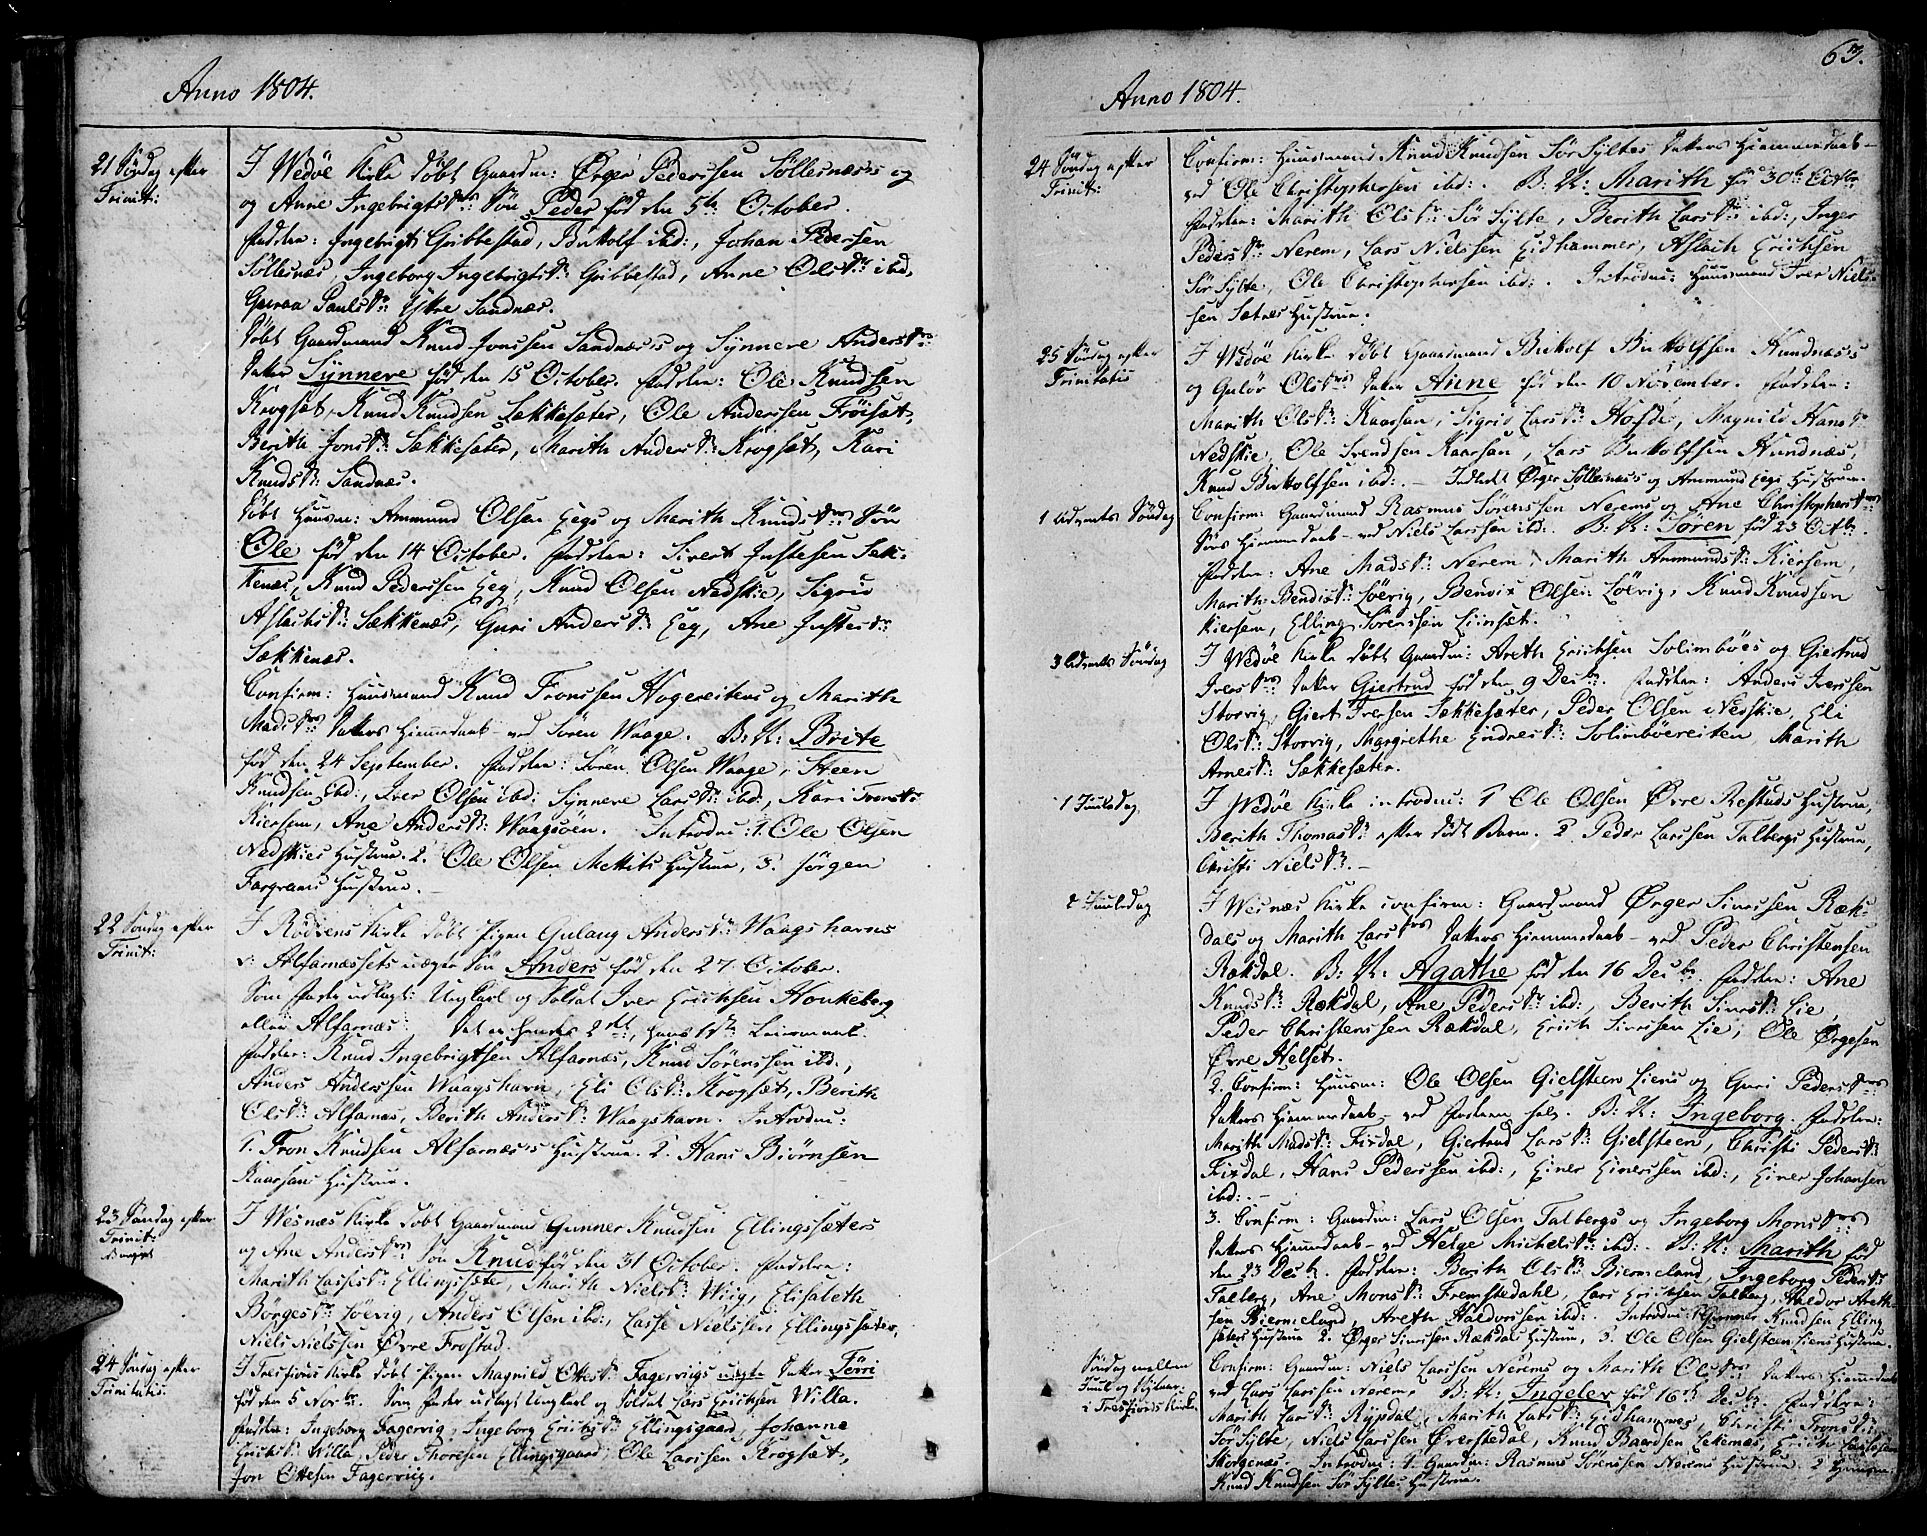 Anno 1804.
21 Söndag efter
Trinit:
I Wedöe Kirke döbt Gaardm: Ørger Pederssen Söllesnæs's og
og Anne Ingebrigtsdrs Sön Peder föd den 5te October.
Fadderne: Ingebrigt Gribbestad, Buttolf ibd:, Johan Pedersen
Söllesnæs, Ingeborg Ingebrigtsdr: Gribbestad, Anne Olsdr: ibd,
Guraa Paulsdr: Ytre Sandnæs.
Döbt Gaardmand Knud Jonssen Sandnæs's og Synneve Andersdrs
Datter Synneve föd den 15 October. Fadderne: Ole Knudsen
Krogsæt, Knud Knudsen Sækkesæter, Ole Anderssen Fröisæt,
Berith Jonsdr: Sækkesæter, Marith Andersdr: Krogsæt, Kari
Knudsdr: Sandnæs.
Döbt Huusm: Ammund Olsen Eegs og Marith Knudsdrs Sön
Ole föd den 14 October. Fadderne: Sivert Justesen Sæk-
kenæs, Knud Pederssen Eeg, Knud Olsen Nedskie, Sigrid
Aslachsdr: Sækkenæs, Guri Andersdr: Eeg, Ane Justesdr:
Sækkenæs.
Confirm: Huusmand Knud Tronssen Hogereitens og Marith
Madsdrs Datters Hjemmedaab ved Sören Waage. B: N: Brite
föd den 24 September. Fadderne: Sören Olsen Waage, Steen
Knudsen ibd:, Iver Olsen ibd: Synneve Larsdr: ibd:, Kari Tronsdr:
Kiersem, Ane Andersdr: Waagsöen. Introdu: 1. Ole Olsen
Nedskies Hustrue. 2. Ole Olsen Mettets Hustrue, 3. Jörgen
Fargeræns Hustrue.
22 Söndag efter
Trinit:
I Rödvens Kirke döbt Pigen Gulaug Andersdr: Waagshavns
v: Alfarnæssets uægte Sön Anders föd den 27 October.
Som Fader udlagt: Ungkarl og Soldat Iver Erichsen Honkeberg
eller Alfarnæs. Det er hendes 2det, hans 1ste Leiermaal.
Fadderne: Knud Ingebrigtsen Alfarnæs, Knud Sörenssen ibd:,
Anders Anderssen Waagshavn, Eli Olsdr: Krogsæt, Berith
Olsdr: Alfarnæs, Berith Andersdr: Waagshavn. Introdu:
1. Tron Knudsen Alfarnæs's Hustrue. 2. Hans Biörnsen
Kaarsans Hustrue.
23 Söndag efter
Trinit:
I Wesnæs Kirke döbt Gaardmand Gunner Knudsen Ellingsæters
og Ane Andersdrs Sön Knud föd den 31 October. Fadderne:
Marith Lassesdr: Ellingsæter, Marith Nielsdr: Wiig, Elisabeth
Börgesdr: Löevig, Anders Olsen ibd:, Lasse Nielssen Ellingssæter,
Niels Nielssen Øvre Frostad.
24 Söndag efter
Trinitatis
I Tresfiords Kirke döbt Pigen Magnild Ottesdr: Fagervigs uægte Datter Törri
föd den 5 Novbr. Som Fader udlagt Ungkarl og Soldat Lars Erichsen Willa.
Fadderne: Ingeborg Fagervig, Ingeborg Erichsdr: Ellingsgaard, Johanne
Erichsdr: Willa, Peder Thoresen Ellingsgaard, Ole Larssen Krogsæt,
Jon Ottesen Fagerviig.
63.
Anno 1804.
24 Söndag efter
Trinit:
Confirm: Huusmand Knud Knudsen SörSyltes Datters Hiemmedaab
ved Ole Christophersen ibd:. B: N: Marith föd 30te Octbr
Fadderne: Marith Olsdr: Sör Sylte, Berith Larsdr: ibd:, Inger
Pedersdr: Nerem, Lars Nielssen Eidhammer, Aslach Erichsen
Sör Sylte, Ole Christophersen ibd:. Introdu: Huusmand Iver Niels-
sen Sætres Hustrue.
25 Söndag efter
Trinitatis
I Wedöe Kirke döbt Gaardmand Buttolf Buttolfsen Hundnæs's
og Gulör Olsdrs Datter Anne föd den 10 November. Fadderne:
Marith Olsdr: Kaarsan, Sigrid Larsdr: Hofde, Magnild Hansdr
Nedskie, Ole Svendsen Kaarsan, Lars Buttolfsen Hundnæs,
Knud Buttolfsen ibd:. - Indledt Ørger Söllesnæs's og Ammund Eegs Hustruer.
1 Advents Söndag
Confirm: Gaardmand Rasmus Sörenssen Nerems og Ane Christophersdrs
Söns Hiemmedaab ved Niels Larssen ibd: B: N: Sören föd 23 Octbr.
Fadderne: Ane Madsdr: Nerem, Marith Ammundsdr: Kiersem,
Marith Bendixsdr: Löevig, Bendix Olsen Löevig, Knud Knudsen
Kiersem, Elling Sörenssen Liinset.
3 Advents Söndag
I Wedöe Kirke döbt Gaardm: Areth Erichsen Solimböes og Giertrud
Iversdrs Datter Giertrud föd den 9 Decbr. Fadderne: Anders Iverssen
Storvig, Giert Iversen Sækkesæter, Peder Olsen Nedskie, Eli
Olsdr: Storvig, Margrethe Endresdr: Solimböereiten, Marith
Arnesdr: Sækkesæter.
1 Juuledag
I Wedöe Kirke introdu: 1 Ole Olsen Övre Restads Hustrue,
Berith Thomasdr: efter dödt Barn. 2. Peder Larssen Talbergs Hustrue,
Christi Nielsdr:. -
2 Juuledag
I Wesnæs Kirke confirm: Gaardmand Ørger Sivertsen Ræk-
dals og Marith Larsdrs Datters Hiemmedaab ved Peder Christensen
Rækdal. B: N: Agathe föd den 16 Decbr. Fadderne: Ane
Knudsdr: Rækdal, Ane Pedersdr: ibd:, Berith Siversdr: Lie,
Peder Christenssen Rækdal, Erich Siverssen Lie, Ole Ørgesen
Øvre Helset.
2. Confirm: Huusm: Ole Olsen Gielsteen Liens og Guri Pedersdrs
Datters Hiemmedaab ved Faderen selv. B: N: Ingeborg. Fadderne:
Marith Madsdr: Fixdal, Giertrud Larsdr: Gielsteen, Christi Pedersdr:
Fixdal, Hans Pederssen ibd:, Einer Einerssen ibd:, Einer Johansen
ibd:. -
3. Confirm: Gaardm: Lars Olsen Talbergs og Ingeborg Monsdrs
Datters Hiemmedaab ved Helge Michelsdr: ibd:. B: N: Marith föd
den 23 Decbr. Fadderne: Berith Olsdr: Biermeland, Ingeborg Pedersdr
Talberg, Ane Monsdr: Fremstedahl, Lars Erichsen Talberg, Haldor Areth-
sen Biermeland, Areth Haldorssen ibd:. Introdu: 1 Gunner Knudsen Elling
sæters Hustrue 2. Ørger Siverssen Rækdals Hustrue, 3. Ole Olsen Gielsteen Liens Hustrue.
Söndag mellem
Juul og Nytaar
i Tresfiords Kirke.
Confirm: Gaardm: Niels Larssen Nerems og Marith Olsdrs Datters Hiemmedaab
ved Lars Larssen Nerem. B: N: Ingelev föd 16de Decbr. Fadderne:
Marith Larsdr: Rypdal, Marith Larsdr: Eidhammer, Christi Tronsdr:
SörSylte, Niels Larssen Øverstedal, Knud Baardsen Lekenæs, Erich Larssen
Skorgenæs. Introdu: 1. Gaardm: Rasmus Sörenssen Nerems Hustrue. 2 Huusm:
Knud Knudsen Sör Syltes Hustrue.